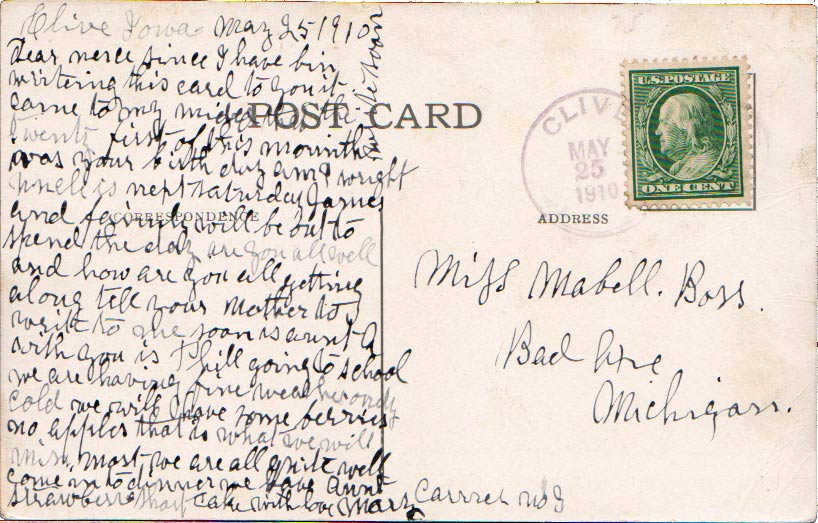 Clive Iowa May 25 1910
Dear niece since I have bin
writing this card to you it
came to my mider that the
twenty first of this mounth
was your birth day am I wright
is next Saturday James
and family will be out to
spend the day are you all well
and how are you all getting
along tell your Mother to
write to me soon is aunt A
with you is Phill going to school
we are having fine weather only
cold we will have some berries
no apples that is what we will
miss most we are all quite well
come in to dinner we have
strawberre short cake with love Aunt Mary
write soon
POST CARD
CORRESPONDENCE
ADDRESS
CLIVE
MAY
25
1910
U.S. POSTAGE
ONE CENT
Miss Mabell. Boss.
Bad Axe
Michigan.